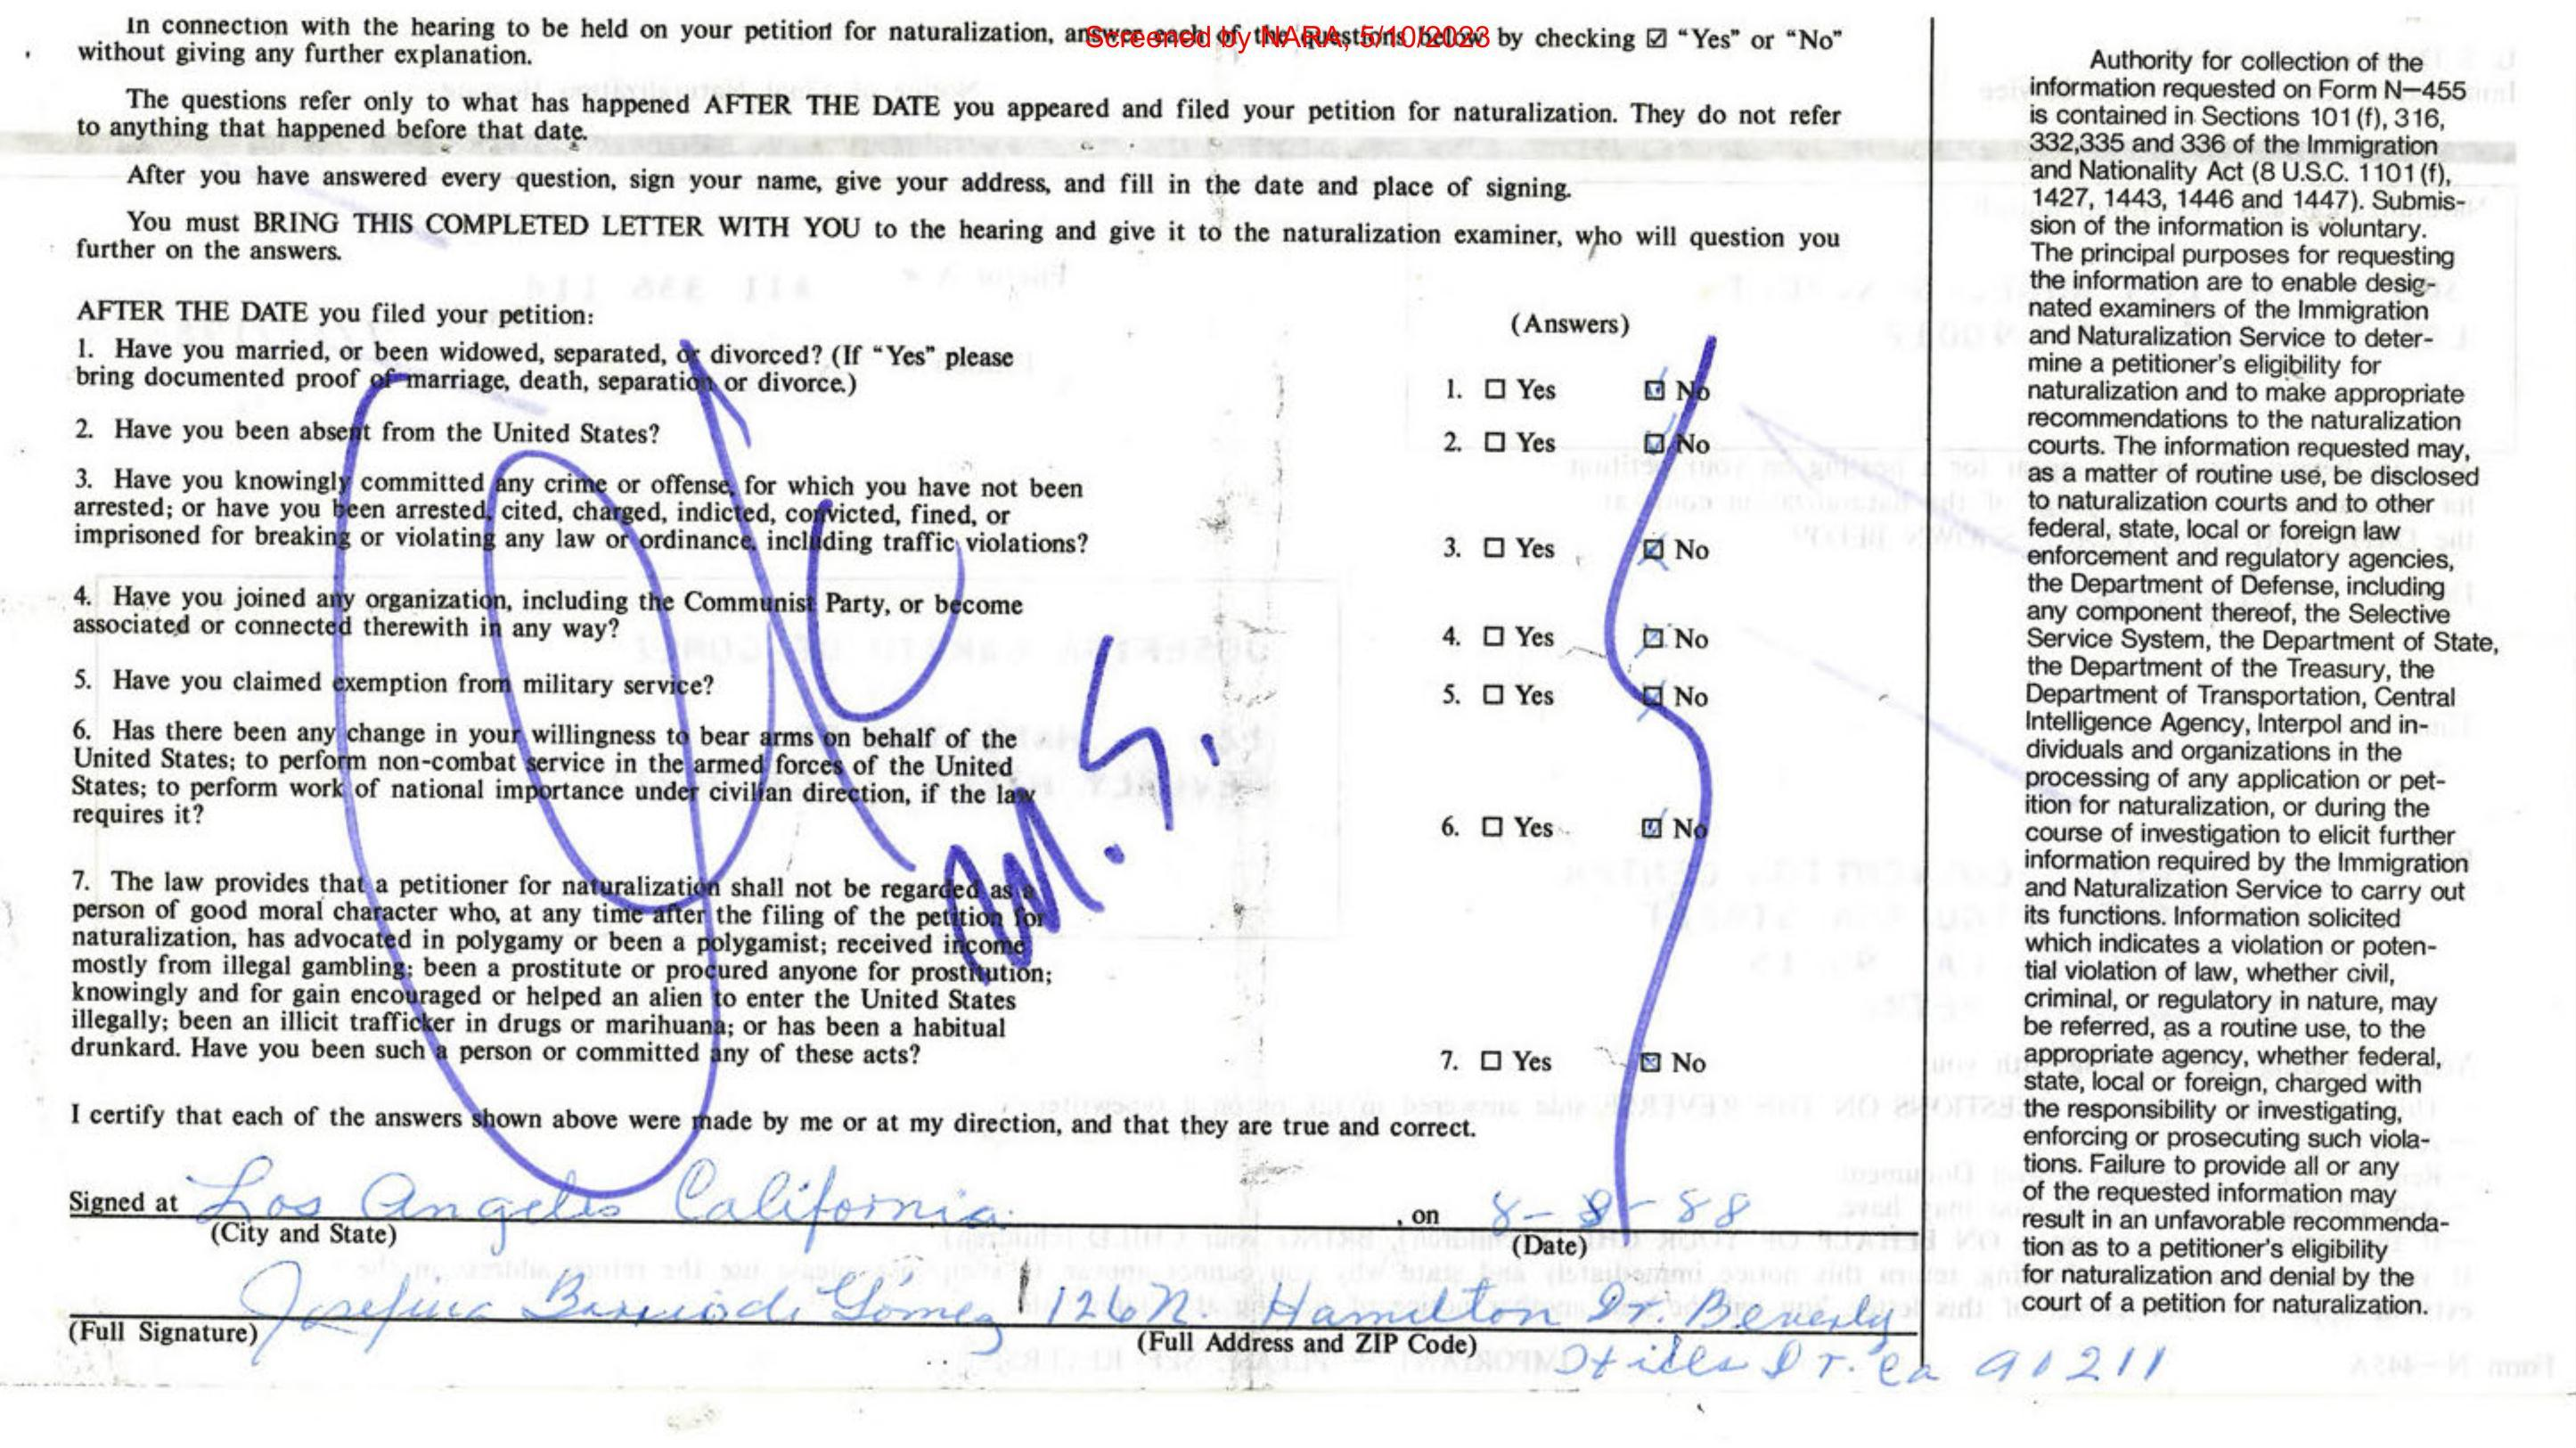 Screened by NARA, 5/10/2023
In connection with the hearing to be held on your petition for naturalization, answer each of the questions below by checking ☑ “Yes” or “No”
without giving any further explanation.
The questions refer only to what has happened AFTER THE DATE you appeared and filed your petition for naturalization. They do not refer
to anything that happened before that date.
After you have answered every question, sign your name, give your address, and fill in the date and place of signing.
You must BRING THIS COMPLETED LETTER WITH YOU to the hearing and give it to the naturalization examiner, who will question you
further on the answers.
AFTER THE DATE you filed your petition:
(Answers)
1. Have you married, or been widowed, separated, or divorced? (If “Yes” please
bring documented proof of marriage, death, separation or divorce.)
1. ☐ Yes ☑ No
2. Have you been absent from the United States?
2. ☐ Yes ☑ No
3. Have you knowingly committed any crime or offense, for which you have not been
arrested; or have you been arrested, cited, charged, indicted, convicted, fined, or
imprisoned for breaking or violating any law or ordinance, including traffic violations?
3. ☐ Yes ☒ No
4. Have you joined any organization, including the Communist Party, or become
associated or connected therewith in any way?
4. ☐ Yes ☒ No
5. Have you claimed exemption from military service?
5. ☐ Yes ☒ No
6. Has there been any change in your willingness to bear arms on behalf of the
United States; to perform non-combat service in the armed forces of the United
States; to perform work of national importance under civilian direction, if the law
requires it?
6. ☐ Yes ☑ No
7. The law provides that a petitioner for naturalization shall not be regarded as a
person of good moral character who, at any time after the filing of the petition for
naturalization, has advocated in polygamy or been a polygamist; received income
mostly from illegal gambling; been a prostitute or procured anyone for prostitution;
knowingly and for gain encouraged or helped an alien to enter the United States
illegally; been an illicit trafficker in drugs or marihuana; or has been a habitual
drunkard. Have you been such a person or committed any of these acts?
7. ☐ Yes ☒ No
OK
M.S.
I certify that each of the answers shown above were made by me or at my direction, and that they are true and correct.
Signed at Los Angeles California, on 8-8-88
(City and State) (Date)
Josefina Barrio de Gómez 126 N. Hamilton Dr. Beverly
(Full Signature) (Full Address and ZIP Code)
Hills Dr. Ca 90211
Authority for collection of the
information requested on Form N–455
is contained in Sections 101 (f), 316,
332,335 and 336 of the Immigration
and Nationality Act (8 U.S.C. 1101 (f),
1427, 1443, 1446 and 1447). Submis-
sion of the information is voluntary.
The principal purposes for requesting
the information are to enable desig-
nated examiners of the Immigration
and Naturalization Service to deter-
mine a petitioner's eligibility for
naturalization and to make appropriate
recommendations to the naturalization
courts. The information requested may,
as a matter of routine use, be disclosed
to naturalization courts and to other
federal, state, local or foreign law
enforcement and regulatory agencies,
the Department of Defense, including
any component thereof, the Selective
Service System, the Department of State,
the Department of the Treasury, the
Department of Transportation, Central
Intelligence Agency, Interpol and in-
dividuals and organizations in the
processing of any application or pet-
ition for naturalization, or during the
course of investigation to elicit further
information required by the Immigration
and Naturalization Service to carry out
its functions. Information solicited
which indicates a violation or poten-
tial violation of law, whether civil,
criminal, or regulatory in nature, may
be referred, as a routine use, to the
appropriate agency, whether federal,
state, local or foreign, charged with
the responsibility or investigating,
enforcing or prosecuting such viola-
tions. Failure to provide all or any
of the requested information may
result in an unfavorable recommenda-
tion as to a petitioner's eligibility
for naturalization and denial by the
court of a petition for naturalization.